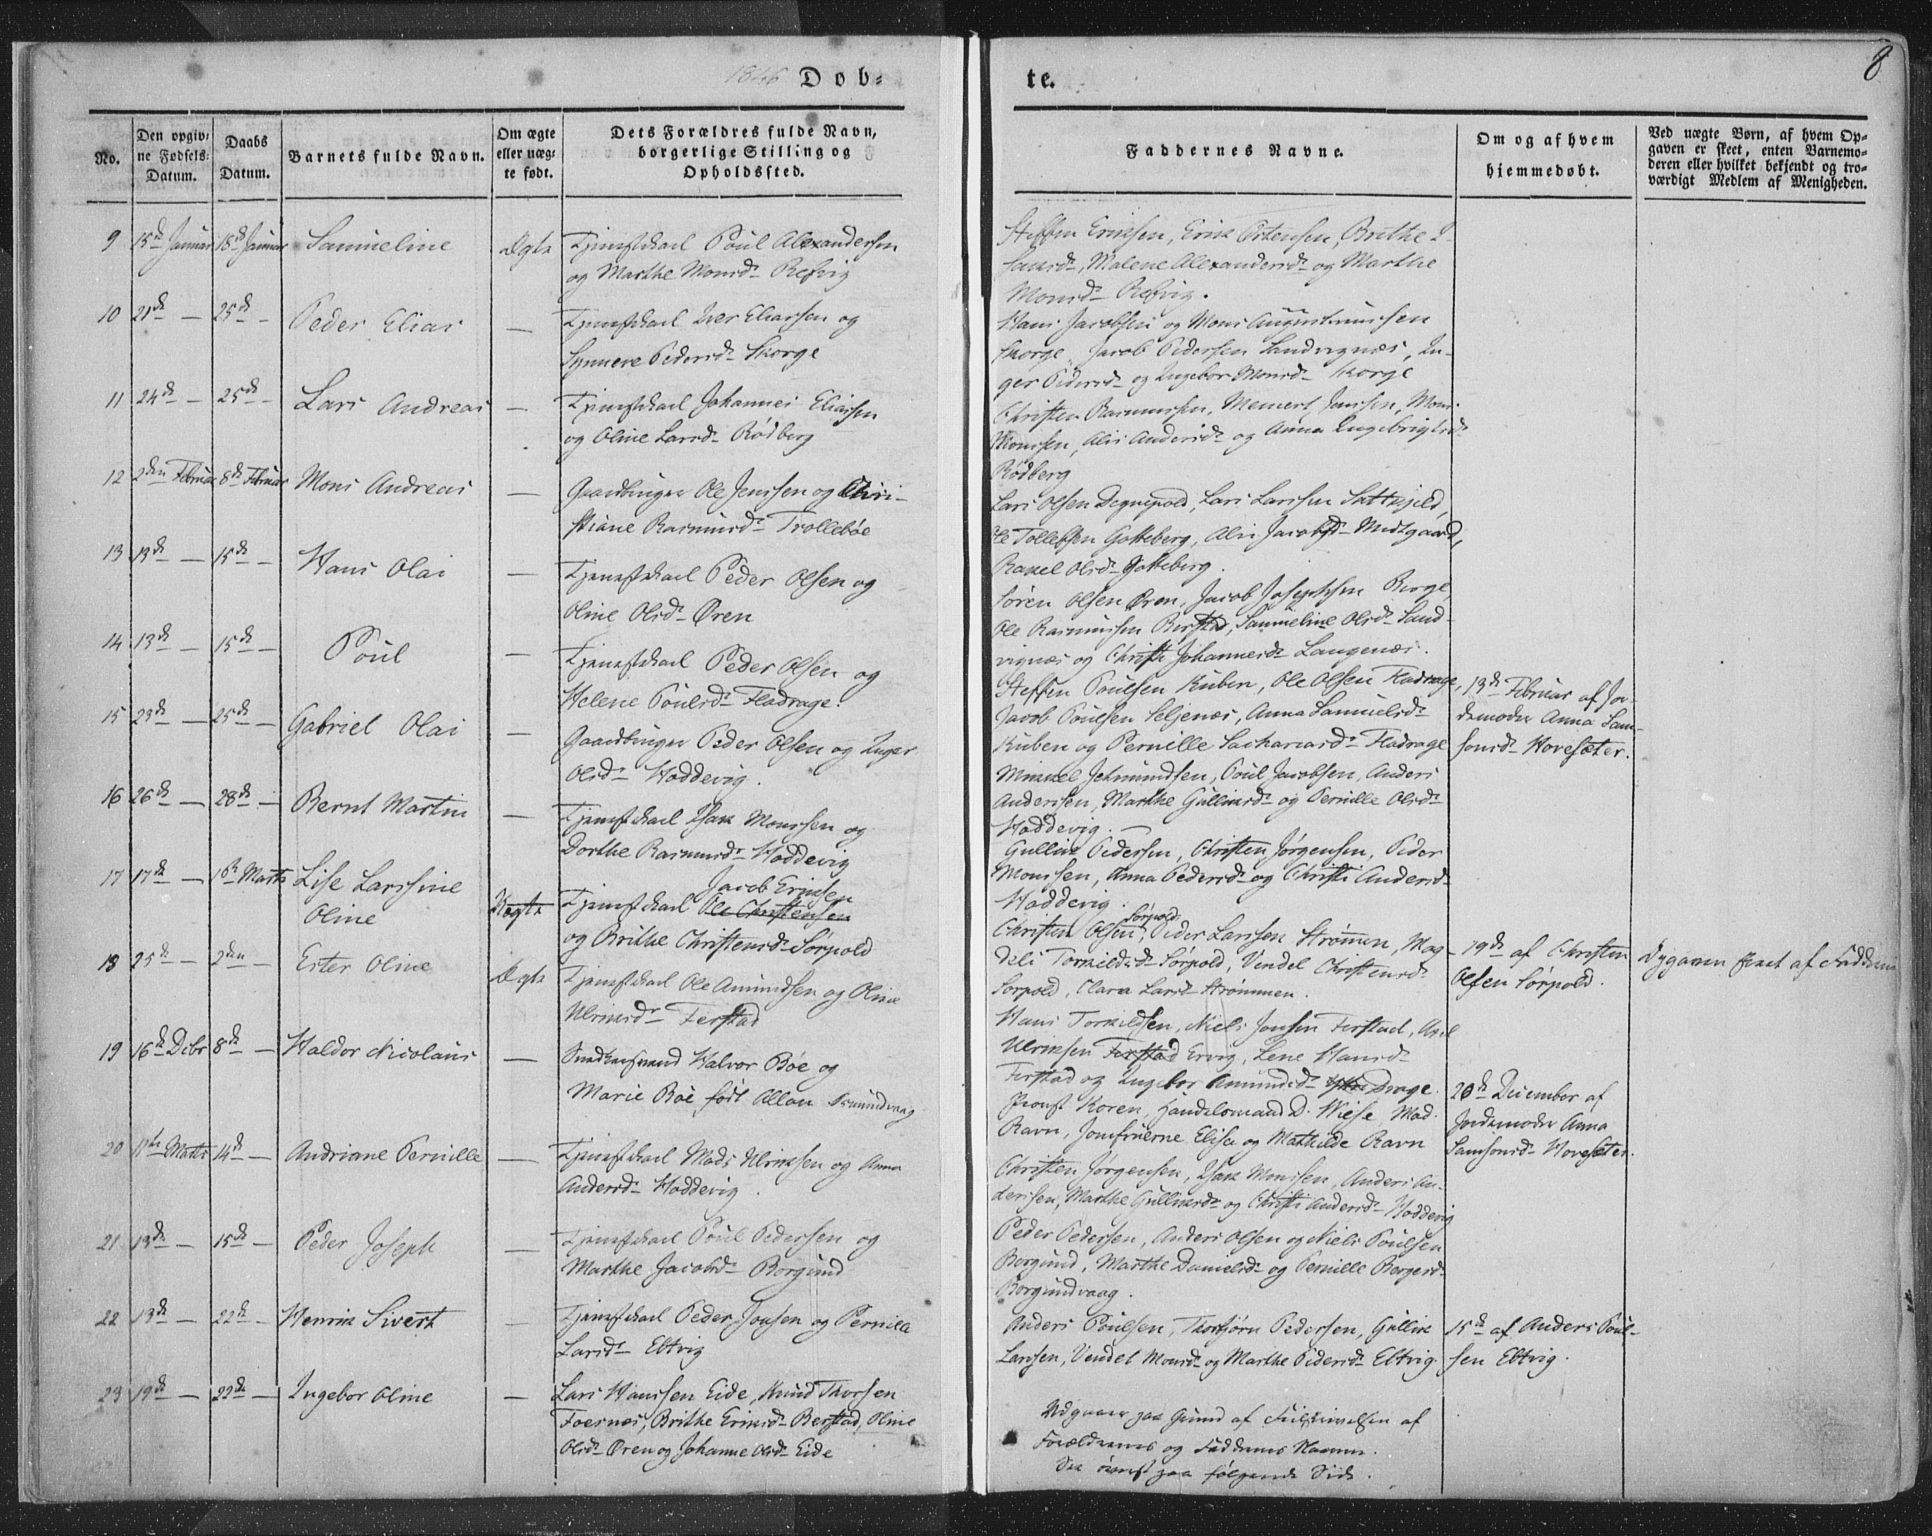 1846 Dob-
te.
8
No.
Den opgiv-
ne Fødsels-
Datum.
Daabs
Datum.
Barnets fulde Navn.
Om ægte
eller uæg-
te født.
Dets Forældres fulde Navn,
borgerlige Stilling og
Opholdssted.
Faddernes Navne.
Om og af hvem
hjemmedøbt.
Ved uægte Børn, af hvem Op-
gaven er skeet, enten Barnemo-
deren eller hvilket bekjendt og tro-
værdigt Medlem af Menigheden.
9 15de Januar 18de Januar Samueline Ægte Tjenestekarl Poul Alexandersen
og Marthe Monsdr Refvig
Steffen Eriksen, Erik Ertensen, Brithe I-
saksdr, Malene Alexandersdr og Marthe
Monsdr Refvig.
10 21de — 25de — Peder Elias — Tjenestekarl Iver Eliassen og
Synneve Pedersdr Skorge
Hans Jacobsen og Mons Augustinussen
Skorge, Jacob Pedersen Sandvignæs, In-
ger Pedersdr og Ingebor Monsdr Skorge
11 24de — 25de — Lars Andreas — Tjenestekarl Johannes Eliassen
og Oline Larsdr Rødberg
Christen Rasmussen, Meinert Jenssen, Mons
Monssen, Alis Andersdr og Anna Ingebrigtsdr
Rødberg
12 2den Februar 8de Februar Mons Andreas — Gaardbruger Ole Jenssen og Chri-
stiane Rasmusdr Trollebøe
Lars Olsen Degnepold, Lars Larssen Sattkjeld,
Ole Tollefsen Gotteberg, Alis Jacobsdr Midtgaard,
Rakel Olsdr Gotteberg.
13 13de — 15de — Hans Olai — Tjenestekarl Peder Olsen og
Oline Olsdr Ören
Sören Olsen Ören, Jacob Josephsen Berge,
Ole Rasmussen Berstad, Sammeline Olsdr Sand-
vignæs og Christi Johannesdr Langenæs.
14 13de — 15de — Poul — Tjenestekarl Peder Olsen og
Helene Poulsdr Fladrage.
Steffen Poulsen Kuben, Ole Olsen Fladrage,
Jacob Poulsen Seljenæs, Anna Samuelsdr
Kuben og Pernille Sachariasdr Fladrage
13de Februar af Jor-
demoder Anna Sam-
sonsdr Hovesæter.
15 23de — 25de — Gabriel Olai — Gaardbruger Peder Olsen og Inger
Olsdr Hoddevig.
Mikkel Jetmundsen, Poul Jacobsen, Anders
Anderssen, Marthe Gulliksdr og Pernille Olsdr
Hoddevig.
16 26de — 28de — Bernt Martin — Tjenestekarl Isak Monssen og
Dorthe Rasmusdr Hoddevig
Gullik Pedersen, Christen Jørgensen, Peder
Monssen, Anna Pedersdr og Christi Andersdr
Hoddevig.
17 17de — 1ste Marts Lise Larssine
Oline
Uægte Jacob Eriksen
Tjenestekarl Ole Christensen
og Brithe Christensdr Sörpold
Christen Olsen Sörpold, Peder Larssen Strømmen, Mag-
deli Torkildsdr Sörpold, Vendel Christensdr
Sorpold, Clara Larsdr Strömmen.
19de af Christen
Olsen Sörpold.
Opgaven skeet af Faddern
18 25de — 2den — Ester Oline Ægte Tjenestekarl Ole Amundsen og Oline
Ulriksdr Ferstad
Hans Torkildsen, Niels Jonsen Ferstad, Axel
Ulriksen Ferstad Ervig, Lene Hansdr
Ferstad og Ingebor Amundsdr Drage.
19 16de Decbr 8de — Haldor Nicolaus — Snedkersvend Halvor Böe og
Marie Böe født Allan
Provst Koren, Handelsmand D. Wiese, Mad.
Ravn, Jomfruerne Elisa og Mathilde Ravn
20de December af
Jordemoder Anna
Samsonsdr Hovesæter.
20 11te Marts 14de — Andriane Pernille — Tjenestekarl Mads Ulriksen og Anna
Andersdr Hoddevig.
Christen Jørgensen, Isak Monssen, Anders An-
derssen, Marthe Gulliksdr og Christi Andersdr Hoddevig
21 13de — 15de — Peder Joseph — Tjenestekarl Poul Pedersen og
Marthe Jacobsdr Borgund
Peder Pedersen, Anders Olsen og Niels Poulsen
Borgund, Marthe Danielsdr og Pernille Borgersdr
Borgundvaag.
22 13de — 22de — Henrik Sivert — Tjenestekarl Peder Jonsen og Pernilla
Larsdr Ebtvig
Anders Poulsen, Thorbjörn Pedersen, Gullik
Larssen, Vendel Monsdr og Marthe Pedersdr Ebtvig.
15de af Anders Poul-
sen Ebtvig.
23 19de — 22de — Ingebor Oline — Lars Hanssen Eide, Knud Thorsen
Foernæs, Brithe Eriksdr Berstad, Oline
Olsdr Ören og Johanne Olsdr Eide
Udgaaer paa Grund af Feilskrivelsen af
Forældrenes og Faddernes Navne.
See överst paa følgende Side.